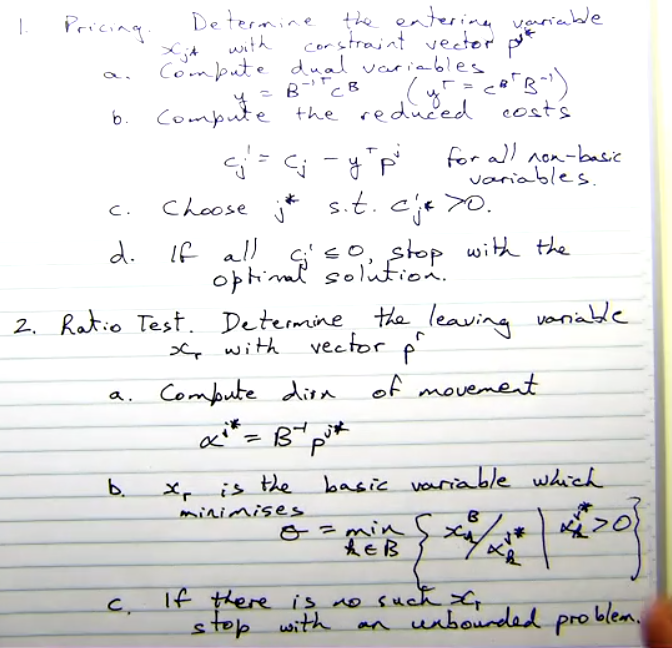 1. Pricing. Determine the entering variable
x_{j*} with constraint vector p^{j*}
a. Compute dual variables
y = B^{-1T} c^B (y^T = c^{BT} B^{-1})
b. Compute the reduced costs
c_j' = c_j - y^T p^j for all non-basic
variables.
c. Choose j* s.t. c'_{j*} > 0.
d. If all c_j' ≤ 0, stop with the
optimal solution.
2. Ratio Test. Determine the leaving variable
x_r with vector p^r
a. Compute dirn of movement
α^{j*} = B^{-1} p^{j*}
b. x_r is the basic variable which
minimises
θ = min { x_k^B / α_k^{j*} | α_k^{j*} > 0 }
k ∈ B
c. If there is no such x_r
stop with an unbounded problem.